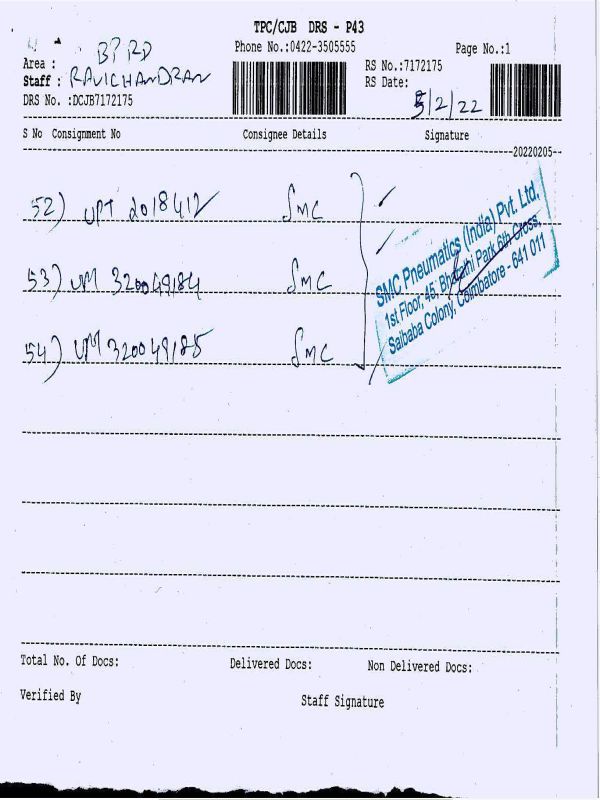 TPC/CJB DRS - P43
Phone No.:0422-3505555
Page No.:1
Area : BPRD
Staff : RAVICHANDRAN
DRS No. :DCJB7172175
RS No.:7172175
RS Date: 5/2/22
S No Consignment No Consignee Details Signature
20220205
52) UPT 2018412 SMC
53) UPM 320049184 SMC
54) UPM 320049185 SMC
SMC Pneumatics (India) Pvt. Ltd,
1st Floor, 45, Bharathi Park 6th Cross,
Saibaba Colony, Coimbatore - 641 011
Total No. Of Docs: Delivered Docs: Non Delivered Docs:
Verified By Staff Signature